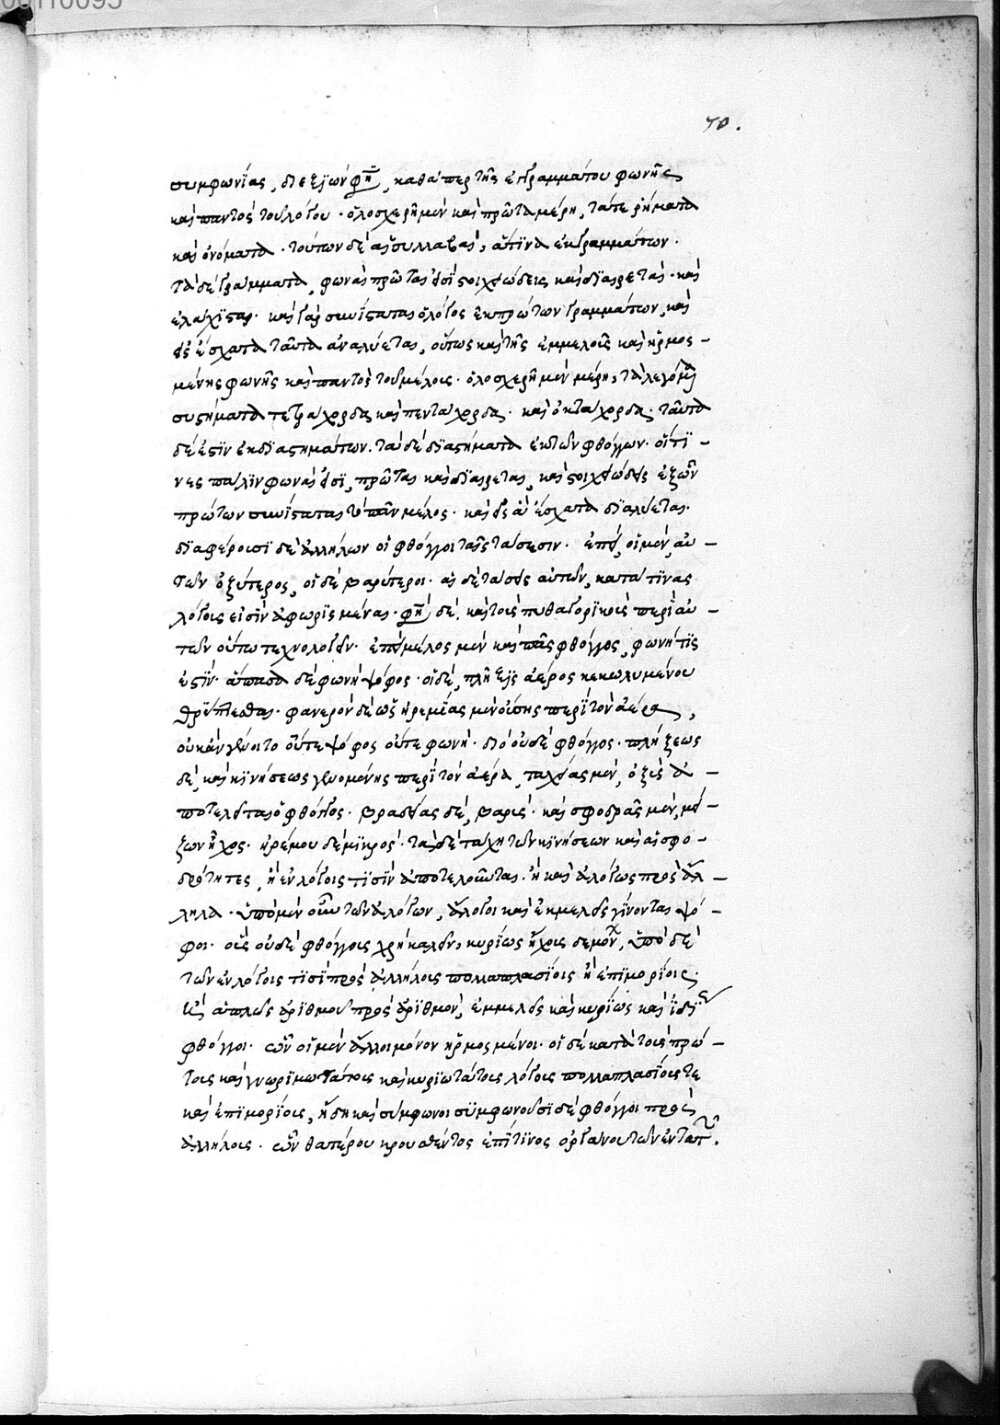 00110095
70.
συμφωνίας, διεξϊὼν φη̅, καθάπερ τῆς ἐγγραμμάτου φωνῆς
καὶ παντὸς τοῦ λόγου. ὁλοσχερῆ μὲν καὶ πρῶτα μέρη, τά τε ῥήματα
καὶ ὀνόματα. τούτων δὲ αἱ συλλαβαὶ, αὗται δ' ἐκ γραμμάτων.
τὰ δὲ γράμματα, φωναὶ πρῶταί εἰσϊ στοιχειώδεις καὶ ἀδϊαίρετοι. καὶ
ἐλάχϊσται. καὶ γὰρ συνίσταται ὁ λόγος ἐκ πρώτων γραμμάτων, καὶ
εἰς ἔσχατα ταῦτα ἀναλύεται, οὕτως καὶ τῆς ἐμμελοῦς καὶ ἡρμοσ-
μένης φωνῆς καὶ παντὸς τοῦ μέλους. ὁλοσχερῆ μὲν μέρη, τὰ λεγόμενα
συστήματα τετράχορδα καὶ πεντάχορδα. καὶ ὀκτάχορδα. ταῦτα
δέ ἐστϊν ἐκ δϊαστημάτων. τὰ δὲ δϊαστήματα ἐκ τῶν φθόγγων. οἵτϊ-
νες πάλϊν φωναί εἰσϊ, πρῶται καὶ ἀδϊαίρετοι, καὶ στοιχειώδεις ἐξ ὧν
πρώτων συνίσταται τὸ πᾶν μέλος. καὶ εἰς ἃ ἔσχατα δϊαλύεται.
δϊαφέρουσϊ δὲ ἀλλήλων οἱ φθόγγοι ταῖς τάσεσιν. ἐπεὶ, οἱ μὲν, αὐ-
τῶν ὀξύτεροι, οἱ δὲ βαρύτεροι. αἱ δὲ τάσεις αὐτῶν, κατά τϊνας
λόγους εἰσὶν ἀφωρϊσμέναι. φη̅ δὲ, καὶ τοὺς πυθαγορϊκοὺς περὶ αὐ-
τῶν οὕτω τεχνολογεῖν. ἐπεὶ μέλος μὲν καὶ πᾶς φθόγγος, φωνή τϊς
ἐστϊν. ἅπασα δὲ φωνὴ ψόφος. ψόφος δὲ, πλῆξϊς ἀέρος κεκωλυμένου
θρύπτεσθαι. φανερὸν δὲ ὡς ἠρεμίας μὲν οὔσης περὶ τὸν ἀέρα,
οὐκ ἂν γένοιτο οὔτε ψόφος οὔτε φωνὴ. διὸ οὐδὲ φθόγγος. πλήξεως
δὲ, καὶ κϊνήσεως γενομένης περὶ τὸν ἀέρα, ταχείας μὲν, ὀξὺς ἀ-
ποτελεῖται ὁ φθόγγος. βραδείας δὲ, βαρὺς. καὶ σφοδρᾶς μὲν, μεί-
ζων ἦχος. ἠρέμου δὲ μϊκρὸς. τὰ δὲ τάχη τῶν κϊνήσεων καὶ αἱ σφο-
δρότητες, ἢ ἐν λόγοις τϊσὶν ἀποτελοῦνται. ἢ καὶ ἀλόγως πρὸς ἄλ-
ληλα. ὑπὸ μὲν οὖν τῶν ἀλόγων, ἄλογοι καὶ ἐκμελεῖς γίνονται ψό-
φοι. οὓς οὐδὲ φθόγγους χρὴ καλεῖν κυρίως ἤχους δὲ μόνον, ὑπὸ δὲ
τῶν ἐν λόγοις τϊσὶ πρὸς ἀλλήλους πολλαπλασίοις ἢ ἐπιμορίοις.
ἢ ἁπλῶς ἀρϊθμοῦ πρὸς ἀρϊθμὸν, ἐμμελεῖς καὶ κυρίως καὶ ἰδίως
φθόγγοι. ὧν οἱ μὲν ἄλλοι μόνον ἡρμοσμένοι. οἱ δὲ κατὰ τοὺς πρώ-
τους καὶ γνωρϊμωτάτους καὶ κυρϊωτάτους λόγους πολλαπλασίους τε
καὶ ἐπϊμορίους, ἤδη καὶ σύμφωνοι συμφωνοῦσϊ δὲ φθόγγοι πρὸς
ἀλλήλους. ὧν θατέρου κρουσθέντος ἐπί τϊνος ὀργάνου τῶν ἐντατῶν.